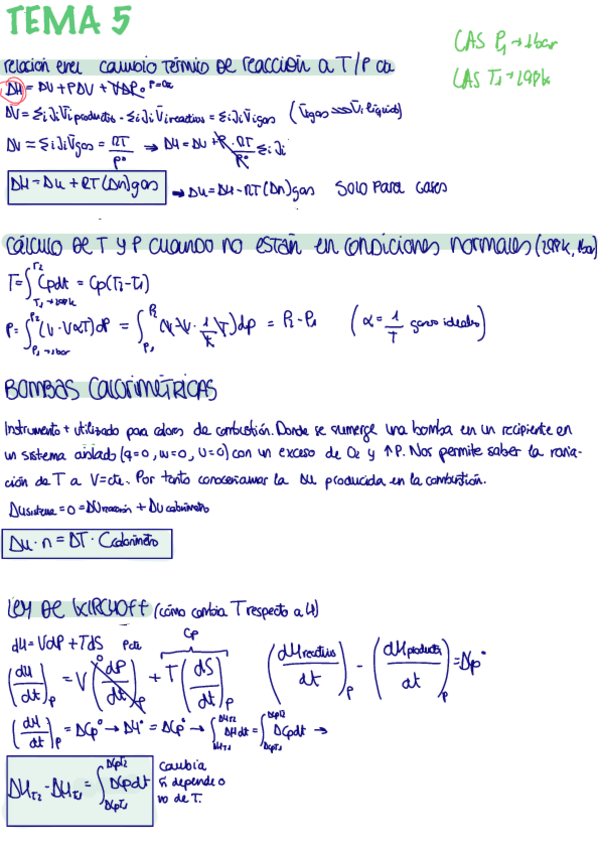 TEMA 5
CAS P₁ → 1bar
CAS T₁ → 298k
relación entre cambio térmico de reacción a T/P cte
ΔH = ΔU + PΔV + VΔP⁰ P=cte
ΔV = Σi νi V̄i productos - Σi νi V̄i reactivos = Σi νi V̄i gas (V̄i gas >>> V̄i líquido)
ΔV = Σi νi V̄ gas = RT/P° → ΔH = ΔU + P° · RT/P° Σi νi
ΔH = ΔU + RT(Δn)gas → ΔU = ΔH - RT(Δn)gas SOLO PARA GASES
CÁLCULO DE T Y P CUANDO NO ESTÁN EN CONDICIONES NORMALES (298k, 1bar)
T = ∫ T₁→298k T₂ Cpdt = Cp(T₂-T₁)
P = ∫ P₁→1bar P₂ (V - VαT)dP = ∫ P₁ P₂ (V - V · 1/T · T)dp = P₂ - P₁ (α = 1/T gases ideales)
BOMBAS CALORIMÉTRICAS
Instrumento + utilizado para calores de combustión. Donde se sumerge una bomba en un recipiente en
un sistema aislado (q=0, w=0, U=0) con un exceso de O₂ y ↑P. Nos permite saber la varia-
ción de T a V=cte. Por tanto conoceríamos la ΔU producida en la combustión.
ΔU sistema = 0 = ΔU reacción + ΔU calorímetro
ΔU · n = ΔT · C calorímetro
LEY DE KIRCHOFF (cómo cambia T respecto a H)
dH = VdP + TdS Pcte
(dH/dt)p = V(dP/dt)p⁰ + T(dS/dt)p Cp (dH reactivos/dt)p - (dH productos/dt)p = Δp°
(dH/dt)p = ΔCp° → ΔH° = ΔCp° → ∫ ΔHT₁ ΔHT₂ ΔHdt = ∫ ΔCpT₁ ΔCpT₂ ΔCpdt →
ΔHT₂ - ΔHT₁ = ∫ ΔCpT₁ ΔCpT₂ ΔCpdt
cambia
si depende o
no de T.